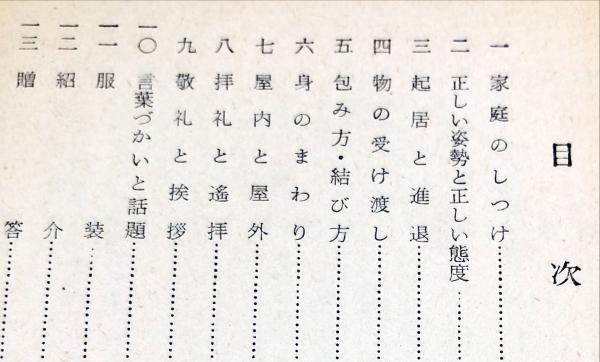 目次
一 家庭のしつけ
二 正しい姿勢と正しい態度
三 起居と進退
四 物の受け渡し
五 包み方・結び方
六 身のまわり
七 屋内と屋外
八 拝礼と遙拝
九 敬礼と挨拶
一〇 言葉づかいと話題
一一 服装
一二 紹介
一三 贈答